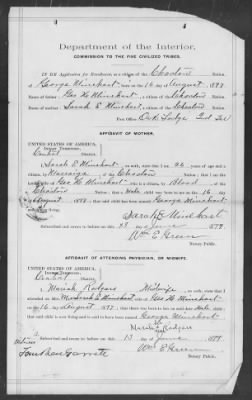 Department of the Interior,
COMMISSION TO THE FIVE CIVILIZED TRIBES.
IN RE Application for Enrollment, as a citizen of the Choctaw Nation,
of George Winehart, born on the 16 day of August, 1897
Name of father: Geo W Winehart, a citizen of the Choctaw Nation.
Name of mother: Sarah E Winehart, a citizen of the Choctaw Nation.
Post Office Oak Lodge Ind Ter
AFFIDAVIT OF MOTHER.
UNITED STATES OF AMERICA,
INDIAN TERRITORY,
Central District.
I, Sarah E Winehart, on oath, state that I am 26 years of age and a
citizen, by Marriage, of the Choctaw Nation;
that I am the lawful wife of Geo W Winehart, who is a citizen, by Blood, of the
Choctaw Nation; that a male child was born to me on the 16 day of
August, 1897, that said child has been named George Winehart,
and is now living.
Sarah E Winehart
Subscribed and sworn to before me this 13 day of June, 1899.
Wm E Green
Notary Public.
AFFIDAVIT OF ATTENDING PHYSICIAN, OR MIDWIFE.
UNITED STATES OF AMERICA,
INDIAN TERRITORY,
Central District.
I, Mariah Rodgers, a Midwife, on oath, state that I
attended on Mrs Sarah E Winehart, wife of Geo W Winehart
on the 16 day of August, 1897; that there was born to her on said date a male child;
that said child is now living and is said to have been named George Winehart
Mariah Rodgers
Subscribed and sworn to before me this 13 day of June, 1899.
Wm E Green
Notary Public.